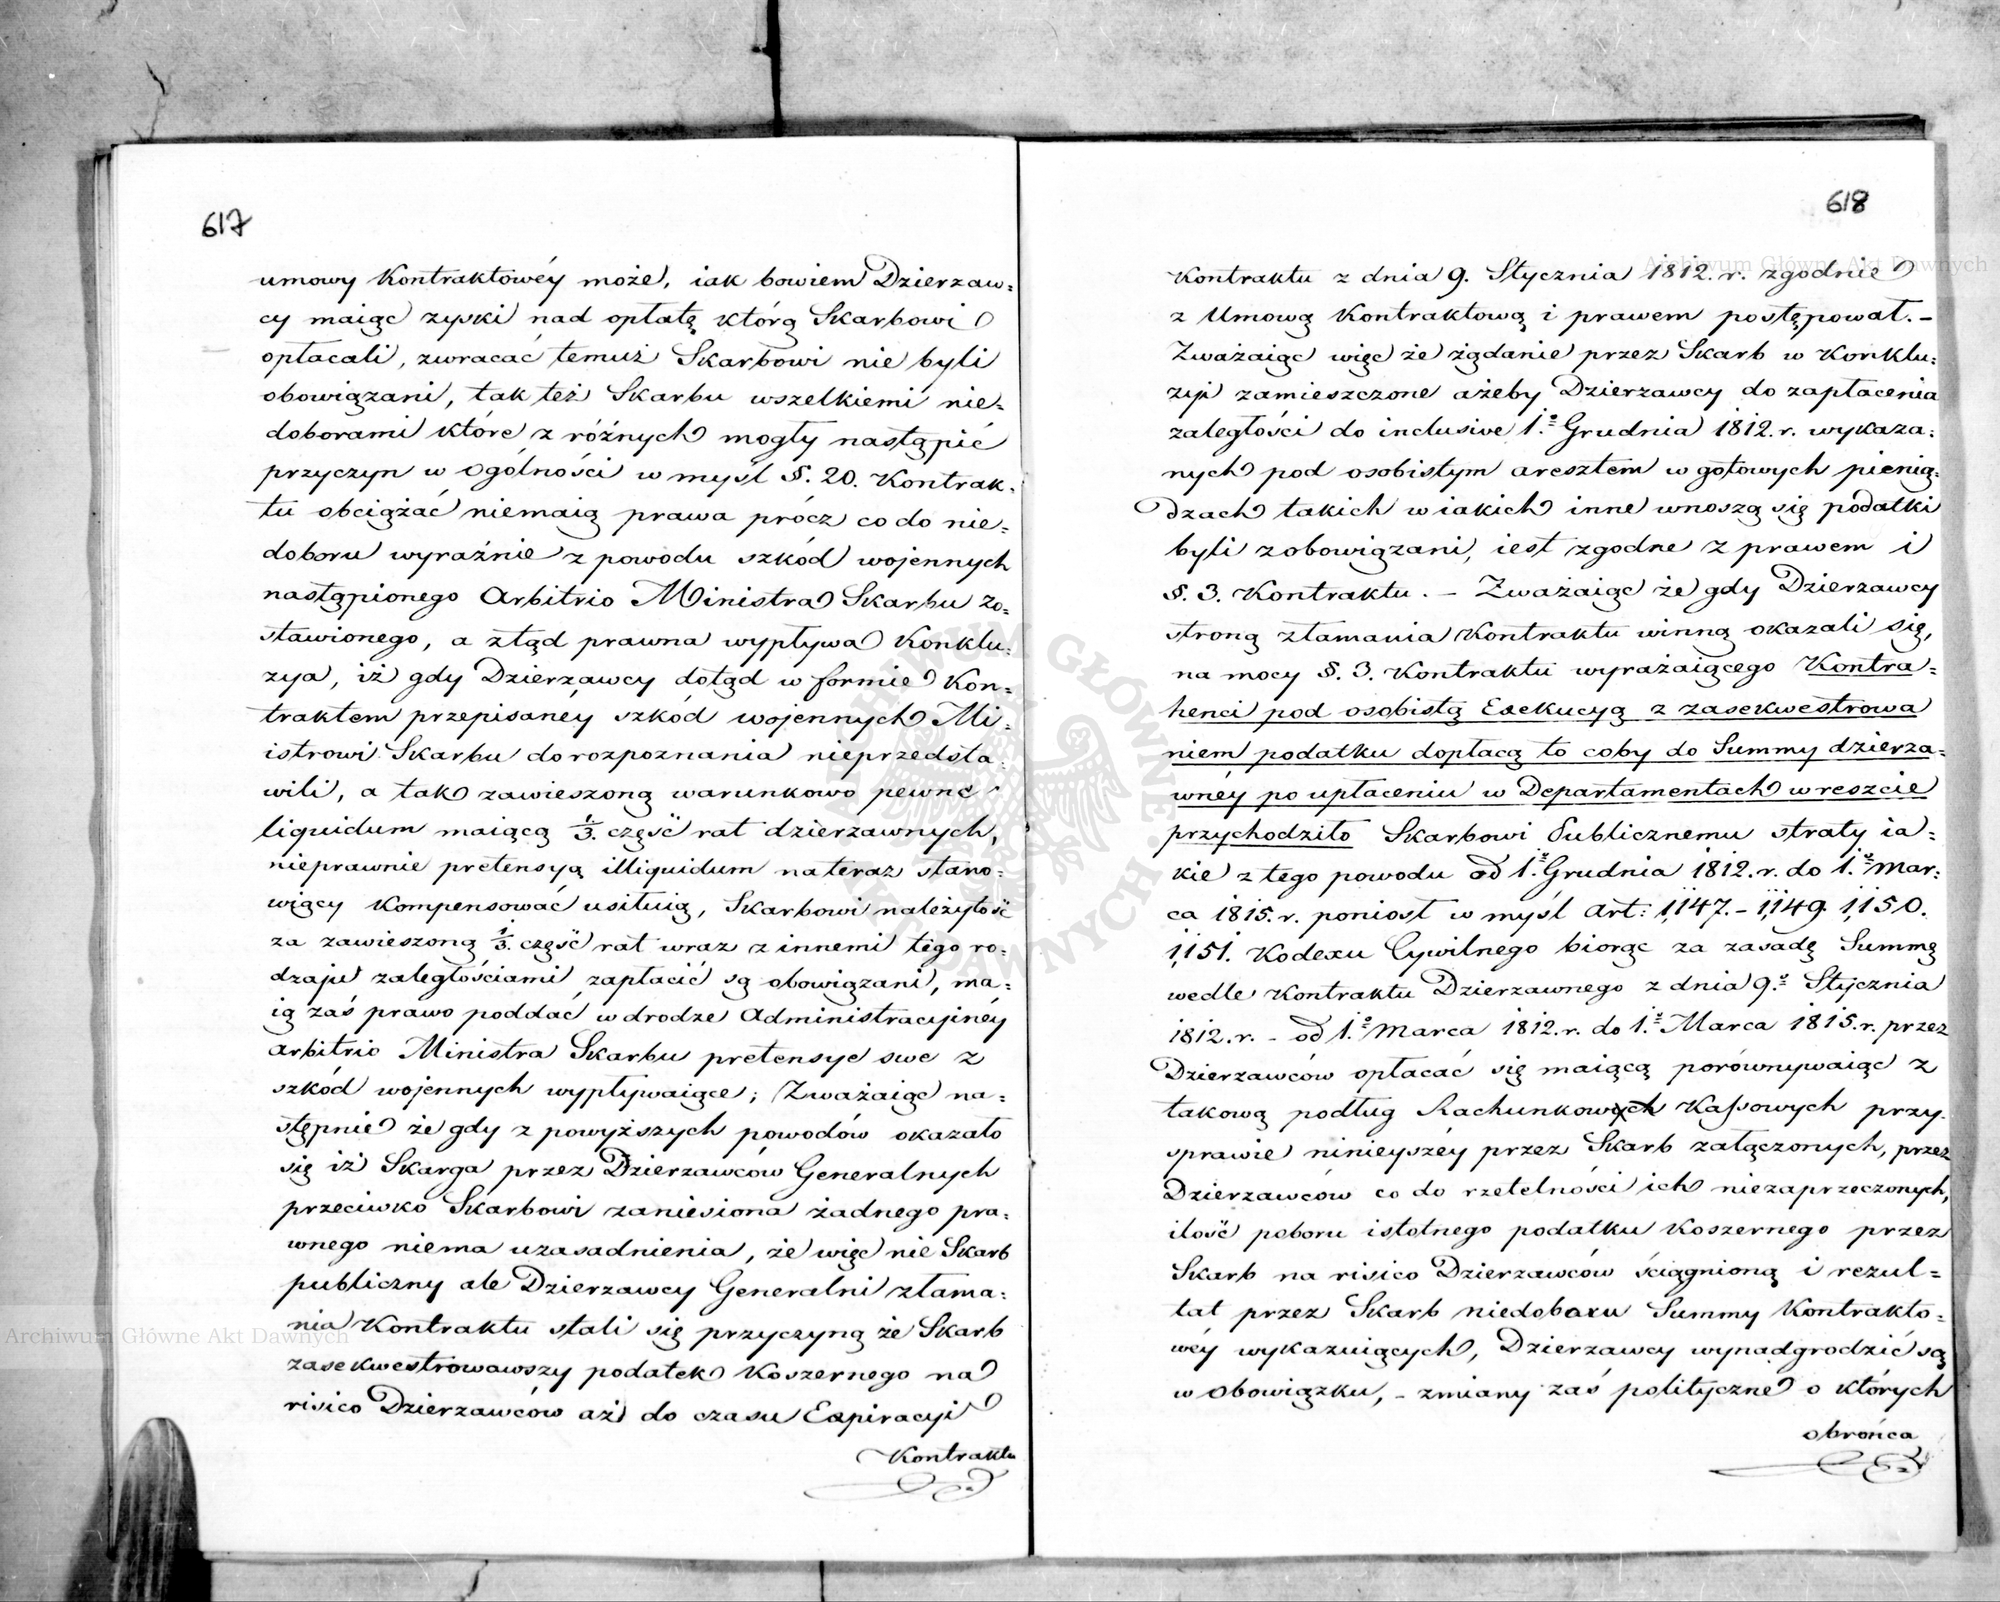 617
umowy Kontraktowéy może, iak bowiem Dzierzaw=
cy maiąc zyski nad opłatę którą Skarbowi
opłacali, zwracać temuż Skarbowi nie byli
obowiązani, tak też Skarbu wszelkiemi nie=
doborami które z różnych mogły nastąpić
przyczyn w ogólności w myśl §. 20. Kontrak=
tu obciążać niemaią prawa prócz co do nie=
doboru wyraźnie z powodu szkód wojennych
nastąpionego Arbitrio Ministra Skarbu zo=
stawionego, a ztąd prawna wypływa Konklu=
zya, iż gdy Dzierzawcy dotąd w formie Kon=
traktem przepisanéy szkód wojennych Mi=
istrowi Skarbu do rozpoznania nieprzedsta=
wili, a tak zawieszoną warunkowo pewne
liquidum maiącą 1/3. część rat dzierzawnych,
nieprawnie pretensyą illiquidum na teraz stano=
wiący Kompensować usituią, Skarbowi należytość
za zawieszoną 1/3. część rat wraz z innemi tego ro=
dzaju zaległościami zapłacić są obowiązani, ma=
ią zaś prawo poddać w drodze Administracyinéy
arbitrio Ministra Skarbu pretensye swe z
szkód wojennych wypływaiące; Zważaiąc na=
stępnie że gdy z powyższych powodów okazało
się iż Skarga przez Dzierzawców Generalnych
przeciwko Skarbowi zaniesiona żadnego pra=
wnego niema uzasadnienia, że więc nie Skarb
publiczny ale Dzierzawcy Generalni złama=
nia Kontraktu stali się przyczyną że Skarb
zasekwestrowawszy podatek Koszernego na
risico Dzierzawców aż do czasu Expiracyi
Kontraktu
618
Kontraktu z dnia 9. Stycznia 1812. r. zgodnie
z Umową Kontraktową i prawem postępował. –
Zważaiąc więc że żądanie przez Skarb w Konklu=
zyi zamieszczone ażeby Dzierzawcy do zapłacenia
zaległości do inclusive 1.º Grudnia 1812. r. wykaza=
nych pod osobistym aresztem w gotowych pienią=
dzach takich w iakich inne wnoszą się podatki
byli zobowiązani, iest zgodne z prawem i
§. 3. Kontraktu. – Zważaiąc że gdy Dzierzawcy
stroną złamania Kontraktu winną okazali się,
na mocy §. 3. Kontraktu wyrażaiącego Kontra=
henci pod osobistą Exekucyą z zasekwestrowa
niem podatku dopłacą to coby do Summy dzierza=
wnéy po upłaceniu w Departamentach w reszcie
przychodziło Skarbowi Publicznemu straty ia=
kie z tego powodu od 1.º Grudnia 1812. r. do 1.º Mar=
ca 1815. r. poniosł w myśl Art: 1,147. – 1,149 1,150.
1,151. Kodexu Cywilnego biorąc za zasadę Summę
wedle Kontraktu Dzierzawnego z dnia 9.º Stycznia
1812. r. – od 1.º Marca 1812. r. do 1.º Marca 1815. r. przez
Dzierzawców opłacać się maiącą porównywaiąc z
takową podług Rachunkowych Kassowych przy
sprawie ninieyszéy przez Skarb załączonych, przez
Dzierzawców co do rzetelności ich niezaprzeczonych,
ilość poboru istotnego podatku Koszernego przez
Skarb na risico Dzierzawców ściągnioną i rezul=
tat przez Skarb niedoboru Summy Kontrakto=
wéy wykazuiących, Dzierzawcy wynadgrodzić są
w obowiązku, – zmiany zaś polityczne o których
obrońca